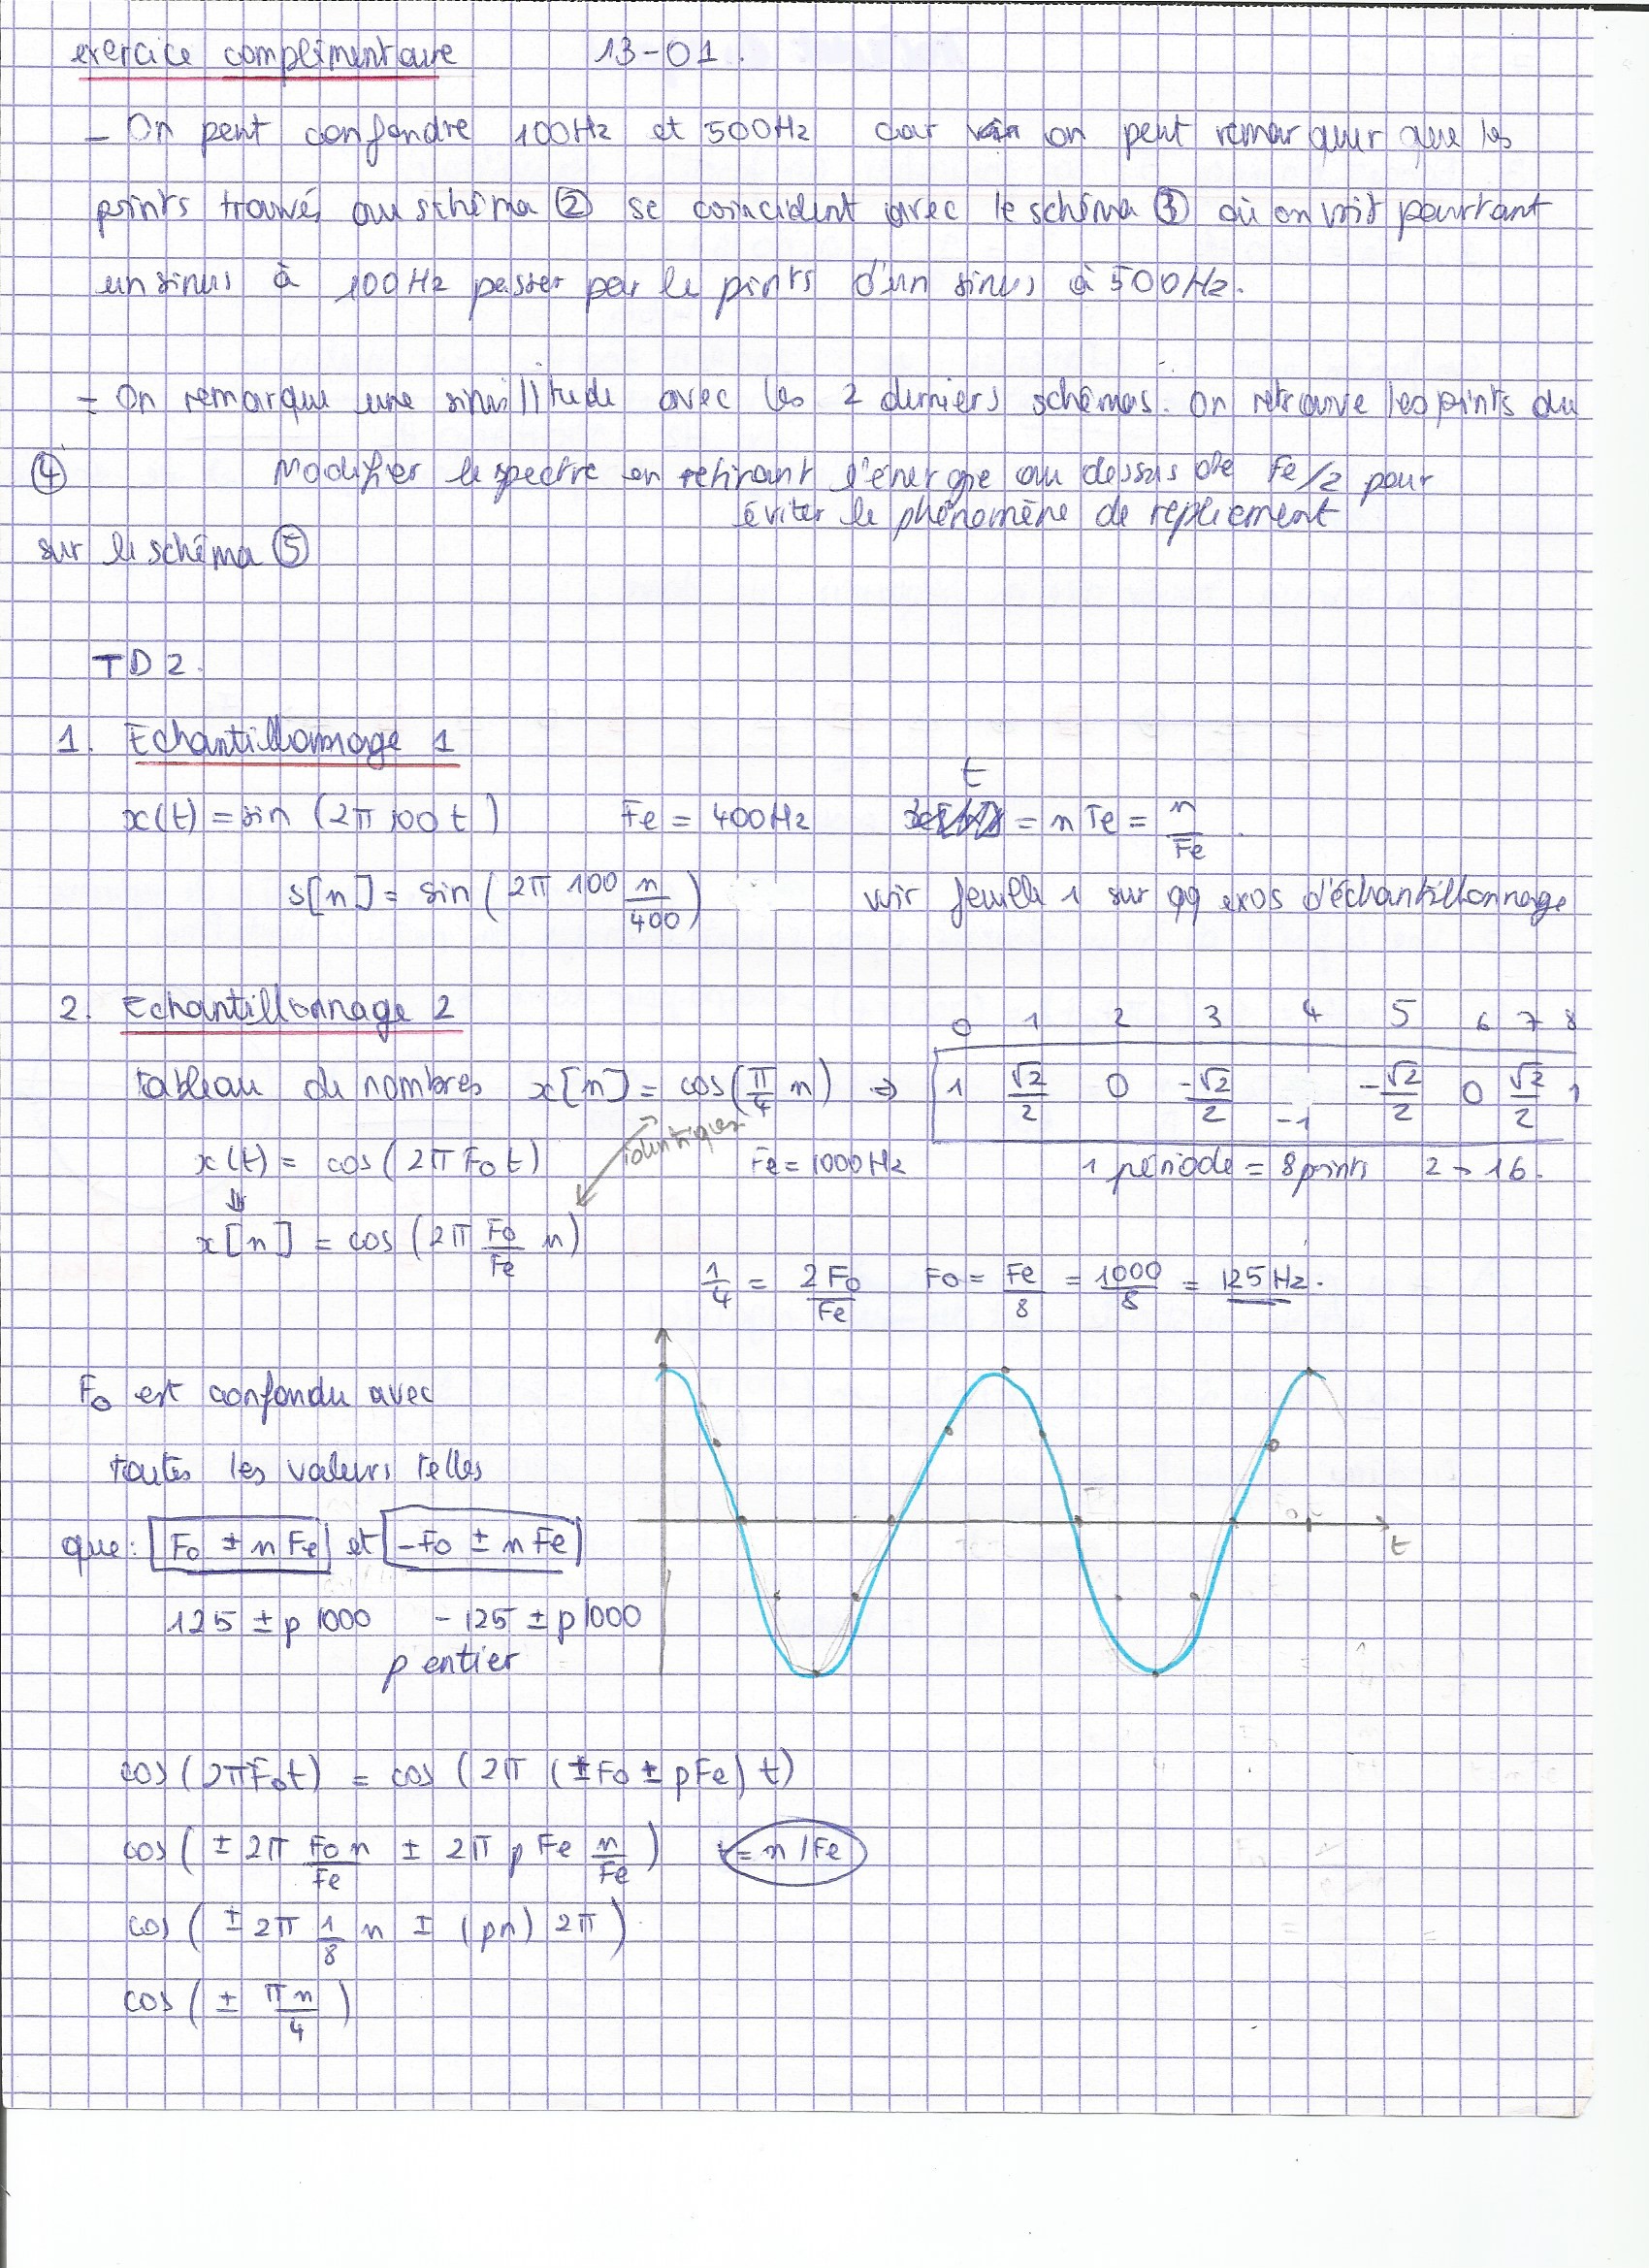 exercice complémentaire 13-01.
- On peut confondre 100Hz et 500Hz car on peut remarquer que les
points trouvés au schéma ② se coincident avec le schéma ③ où on voit pourtant
un sinus à 100Hz passer par le pints d'un sinus à 500Hz.
- On remarque une similitude avec les 2 derniers schémas. On retrouve les points du
④ Modifier le spectre en retirant l'énergie au dessus de Fe/2 pour
éviter le phénomène de repliement
sur le schéma ⑤
TD2.
1. Echantillonnage 1
x(t) = sin (2π 100 t) Fe = 400Hz t = nTe = n/Fe.
s[n] = sin (2π 100 n/400) voir feuille 1 sur qq exos d'échantillonnage
2. Echantillonnage 2
0 1 2 3 4 5 6 7 8
tableau de nombres x[n] = cos(π/4 n) ⇒ 1 √2/2 0 -√2/2 -1 -√2/2 0 √2/2 1
identiques
x(t) = cos(2π F0 t) Fe = 1000Hz 1 période = 8 points 2 → 16.
⇓
x[n] = cos (2π F0/Fe n)
1/4 = 2F0/Fe F0 = Fe/8 = 1000/8 = 125 Hz.
F0 est confondu avec
toutes les valeurs telles
que: F0 ± n Fe et -F0 ± n Fe
t
125 ± p 1000 - 125 ± p 1000
p entier
cos(2πF0t) = cos (2π (±F0 ± pFe) t)
cos( ± 2π F0 n/Fe ± 2π p Fe n/Fe ) t = n/Fe
cos ( ± 2π 1/8 n ± (pn) 2π )
cos ( ± πn/4 )